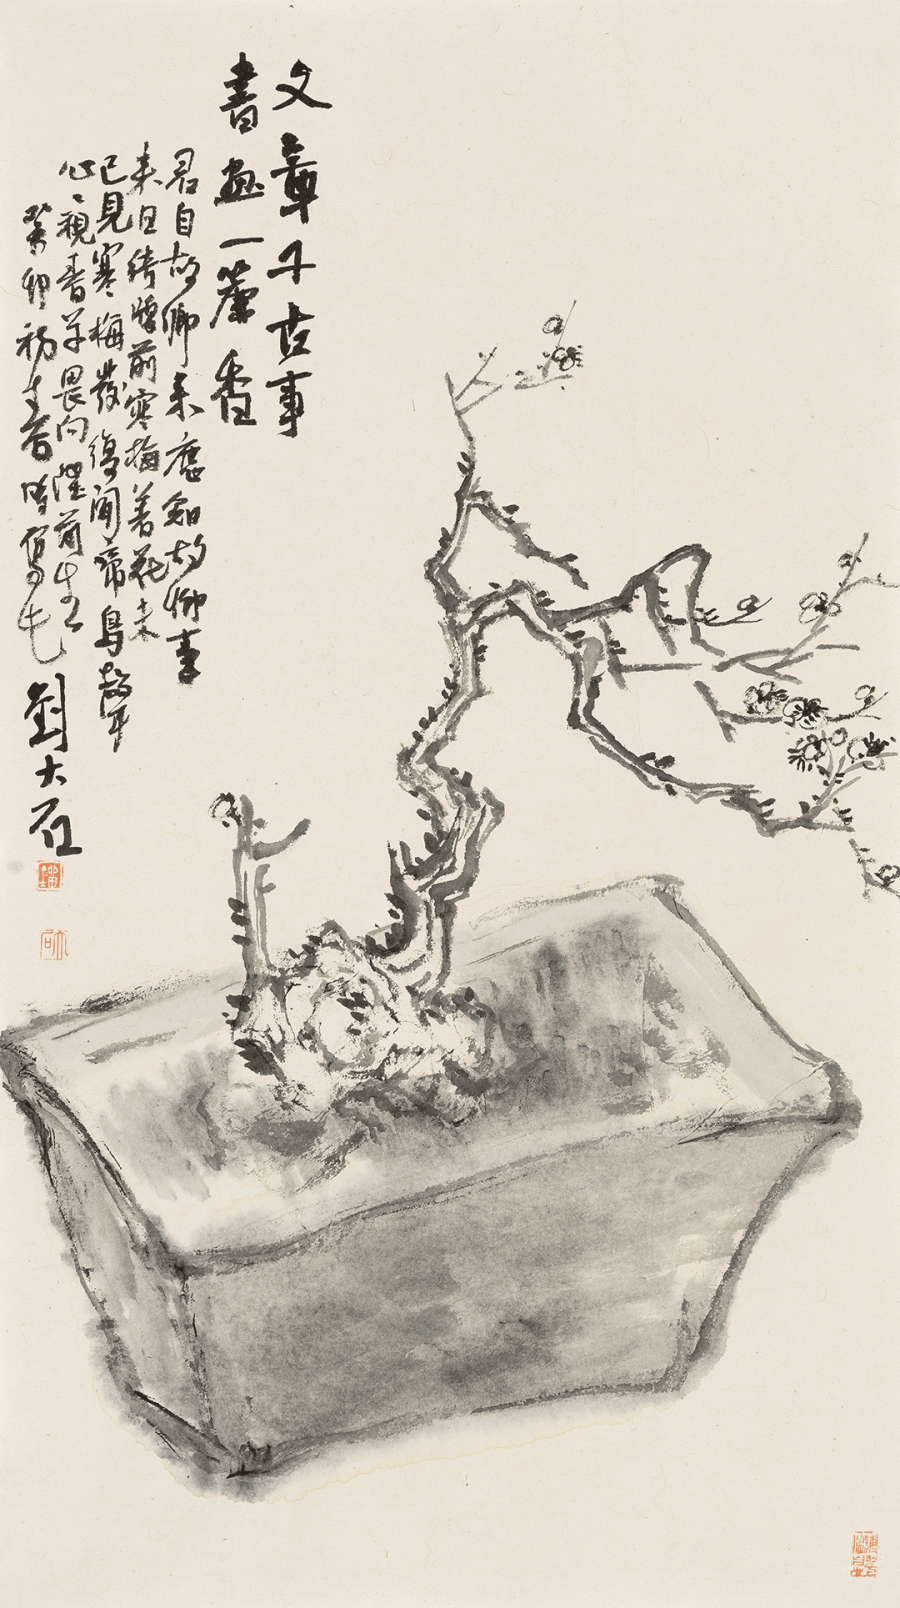 文章千古事
書畫一簾香
君自故鄉来應知故鄉事
来日綺牕前寒梅著花未
已見寒梅發復聞啼鳥聲
心〻視春草畏向階前生
癸卯初 時寫也 劉大石